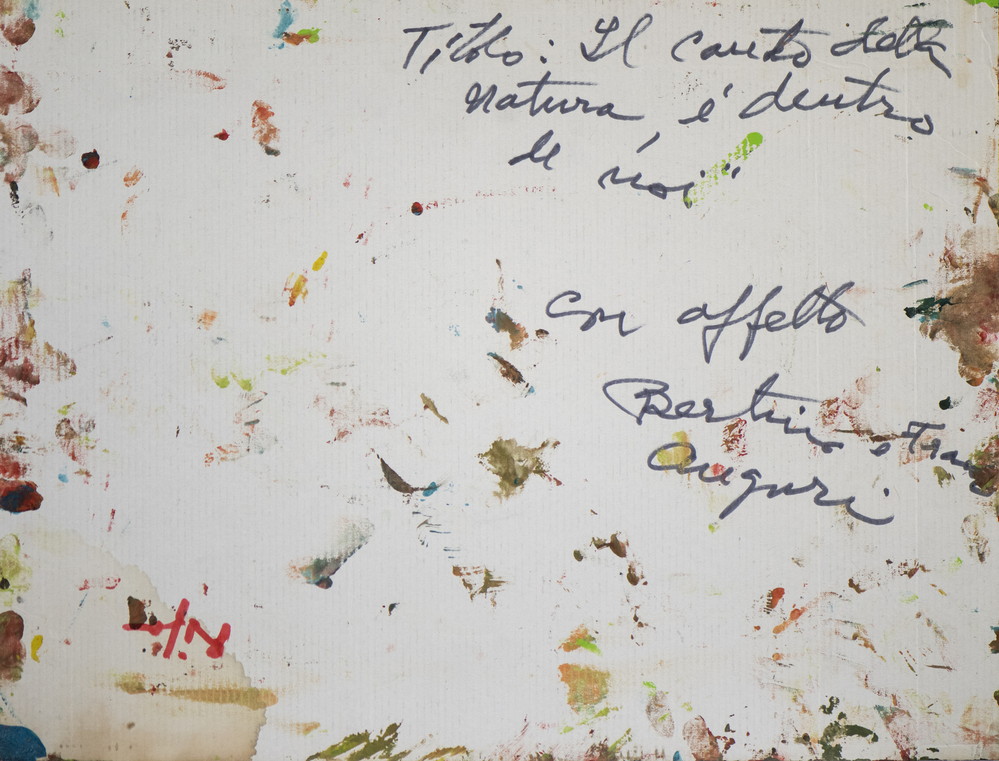 Titolo: Il canto della
natura, é dentro
de noi"
con affetto
Bertino e Franz
auguri